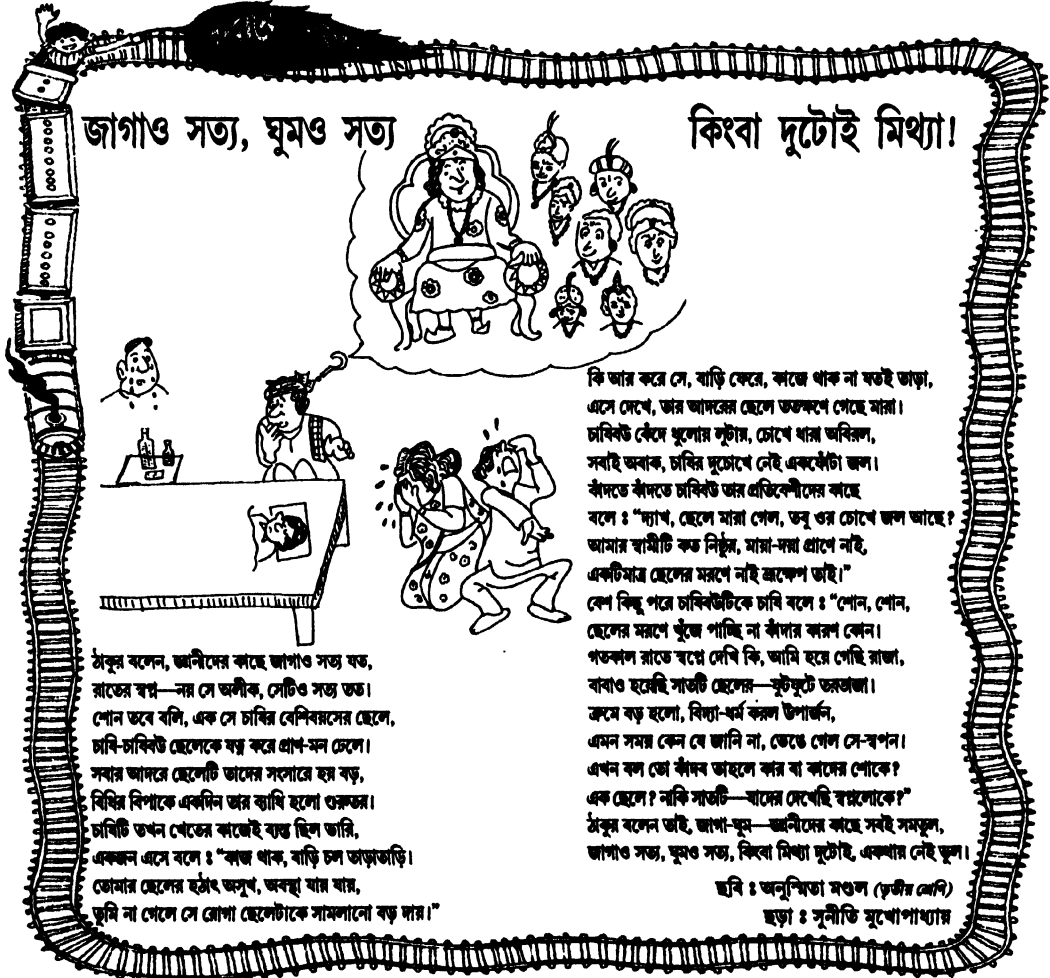 জাগাও সত্য, ঘুমও সত্য কিংবা দুটোই মিথ্যা!
ঠাকুর বলেন, জ্ঞানীদের কাছে জাগাও সত্য যত,
রাতের স্বপ্ন—নয় সে অলীক, সেটিও সত্য তত।
শোন তবে বলি, এক সে চাষির বেশিবয়সের ছেলে,
চাষি-চাষিবউ ছেলেকে যত্ন করে প্রাণ-মন ঢেলে।
সবার আদরে ছেলেটি তাদের সংসারে হয় বড়,
বিধির বিপাকে একদিন তার ব্যাধি হলো গুরুতর।
চাষিটি তখন খেতের কাজেই ব্যস্ত ছিল ভারি,
একজন এসে বলে : “কাজ থাক, বাড়ি চল তাড়াতাড়ি।
তোমার ছেলের হঠাৎ অসুখ, অবস্থা যায় যায়,
তুমি না গেলে সে রোগা ছেলেটাকে সামলানো বড় দায়।”
কি আর করে সে, বাড়ি ফেরে, কাজে থাক না যতই তাড়া,
এসে দেখে, তার আদরের ছেলে ততক্ষণে গেছে মারা।
চাষিবউ কেঁদে ধুলোয় লুটায়, চোখে ধারা অবিরল,
সবাই অবাক, চাষির দুচোখে নেই একফোঁটা জল।
কাঁদতে কাঁদতে চাষিবউ তার প্রতিবেশীদের কাছে
বলে : “দ্যাখ, ছেলে মারা গেল, তবু ওর চোখে জল আছে?
আমার স্বামীটি কত নিষ্ঠুর, মায়া-দয়া প্রাণে নাই,
একটিমাত্র ছেলের মরণে নাই ভ্রূক্ষেপ তাই।”
বেশ কিছু পরে চাষিবউটিকে চাষি বলে : “শোন, শোন,
ছেলের মরণে খুঁজে পাচ্ছি না কাঁদার কারণ কোন।
গতকাল রাতে স্বপ্নে দেখি কি, আমি হয়ে গেছি রাজা,
বাবাও হয়েছি সাতটি ছেলের—ফুটফুটে তরতাজা।
ক্রমে বড় হলো, বিদ্যা-ধর্ম করল উপার্জন,
এমন সময় কেন যে জানি না, ভেঙে গেল সে-স্বপন।
এখন বল তো কাঁদব তাহলে কার বা কাদের শোকে?
এক ছেলে? নাকি সাতটি—যাদের দেখেছি স্বপ্নলোকে?”
ঠাকুর বলেন তাই, জাগা-ঘুম—জ্ঞানীদের কাছে সবই সমতুল,
জাগাও সত্য, ঘুমও সত্য, কিংবা মিথ্যা দুটোই, একথায় নেই ভুল।
ছবি : অনুস্মিতা মণ্ডল (তৃতীয় শ্রেণি)
ছড়া : সুনীতি মুখোপাধ্যায়